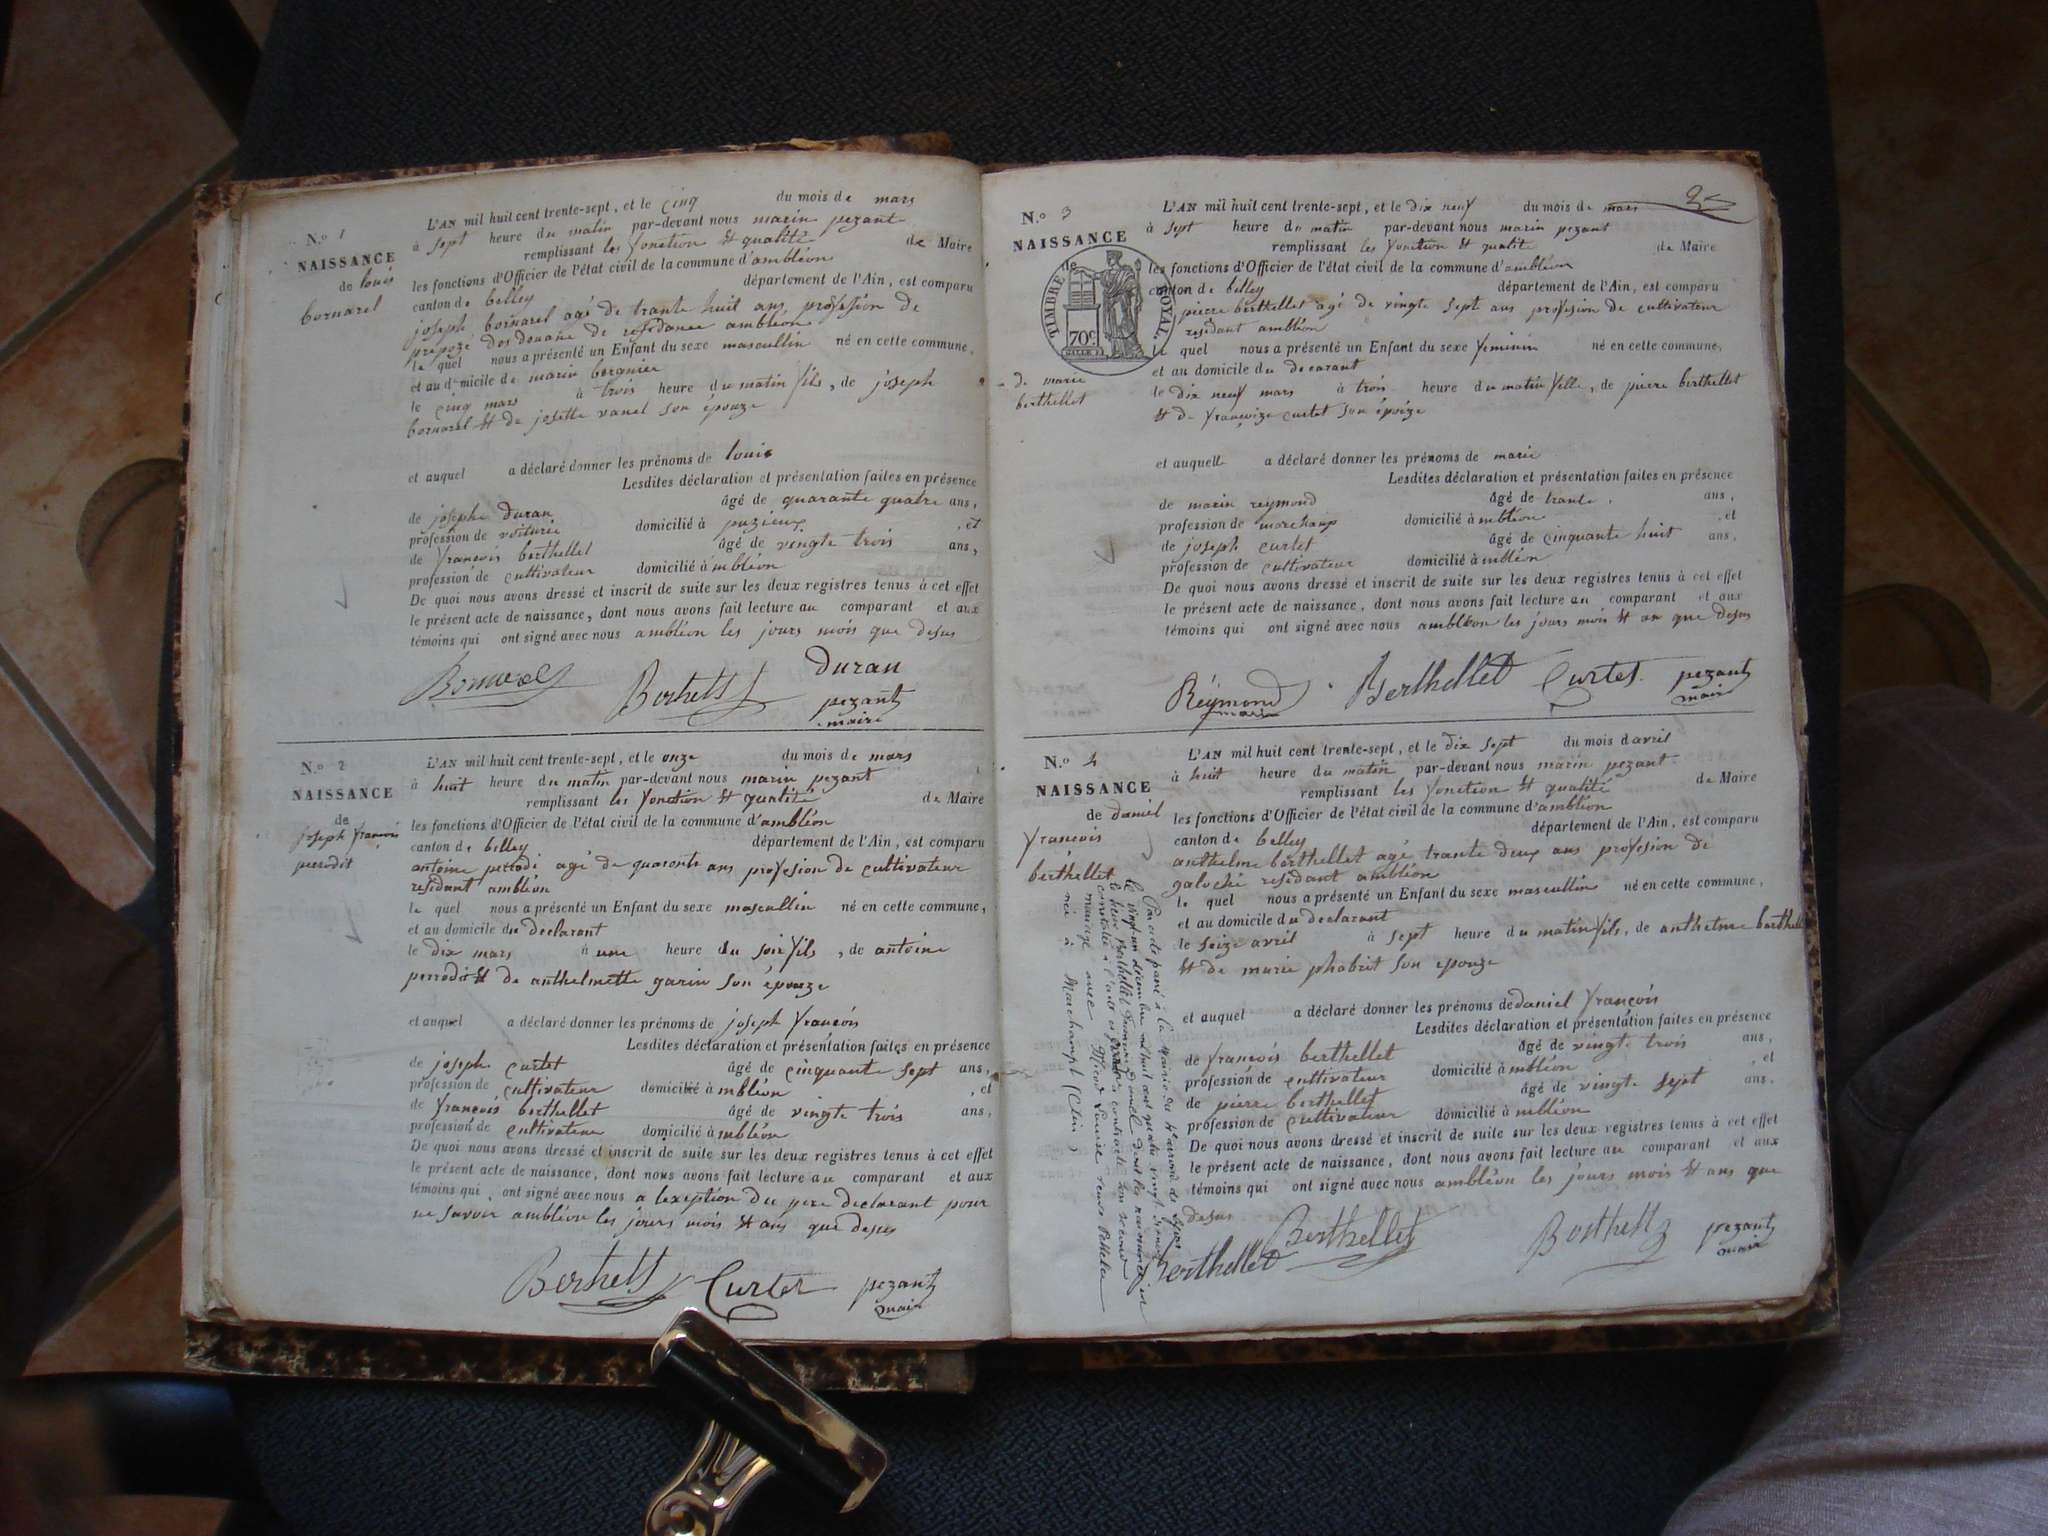 N.º 1
NAISSANCE
de louis
bornarel
L'AN mil huit cent trente-sept, et le cinq du mois de mars
à sept heure du matin par-devant nous marin pezant
remplissant les fonction et qualité de Maire
les fonctions d'Officier de l'état civil de la commune d'ambléon
canton de belley département de l'Ain, est comparu
joseph bornarel agé de trante huit ans profesion de
prepozé des douane de residance ambléon
le quel nous a présenté un Enfant du sexe mascullin né en cette commune,
et au d'micile de marin bergnier
le cinq mars à trois heure du matin fils, de joseph
bornarel et de josette vanel son épouze
et auquel a déclaré donner les prénoms de louis
Lesdites déclaration et présentation faites en présence
de joseph duran âgé de quarante quatre ans,
profession de voiturié domicilié à puzieux, et
de françois berthellet âgé de vingte trois ans,
profession de cultivateur domicilié à mbléon
De quoi nous avons dressé et inscrit de suite sur les deux registres tenus à cet effet
le présent acte de naissance, dont nous avons fait lecture au comparant et aux
témoins qui ont signé avec nous ambléon les jours mois que desus
Bornarel Berthellet duran
pezant
maire
N.º 2
NAISSANCE
de
joseph françois
perrodit
L'AN mil huit cent trente-sept, et le onze du mois de mars
à huit heure du matin par-devant nous marin pezant
remplissant les fonction et qualité de Maire
les fonctions d'Officier de l'état civil de la commune d'ambléon
canton de belley département de l'Ain, est comparu
antoine perrodi agé de quarante ans profesion de cultivateur
residant ambléon
le quel nous a présenté un Enfant du sexe mascullin né en cette commune,
et au domicile du declarant
le dix mars à une heure du soir fils, de antoine
perrodit et de anthelmette garin son épouze
et auquel a déclaré donner les prénoms de joseph françois
Lesdites déclaration et présentation faites en présence
de joseph curtet âgé de cinquante sept ans,
profession de cultivateur domicilié à mbléon, et
de françois berthellet âgé de vingte trois ans,
profession de cultivateur domicilié à mbléon
De quoi nous avons dressé et inscrit de suite sur les deux registres tenus à cet effet
le présent acte de naissance, dont nous avons fait lecture au comparant et aux
témoins qui ont signé avec nous a lexeption du pere declarant pour
ne savoir ambléon les jours mois et ans que desus
Berthellet Curtet pezant
maire
N.º 3
NAISSANCE
de
TIMBRE ROYAL.
70c.
de marie
berthellet
L'AN mil huit cent trente-sept, et le dix neuf du mois de mars
à sept heure du matin par-devant nous marin pezant
remplissant les fonction et qualité de Maire
les fonctions d'Officier de l'état civil de la commune d'ambléon
canton de belley département de l'Ain, est comparu
pierre berthellet agé de vingte sept ans profision de cultivateur
residant ambléon
le quel nous a présenté un Enfant du sexe feminin né en cette commune,
et au domicile du decarant
le dix neuf mars à trois heure du matin felle, de pierre berthellet
et de françoize curtet son épouze
et auquell a déclaré donner les prénoms de marie
Lesdites déclaration et présentation faites en présence
de marin reymond âgé de trante ans,
profession de marchand domicilié à mbléon, et
de joseph curtet âgé de cinquante huit ans,
profession de cultivateur domicilié à mbléon
De quoi nous avons dressé et inscrit de suite sur les deux registres tenus à cet effet
le présent acte de naissance, dont nous avons fait lecture au comparant et aux
témoins qui ont signé avec nous ambléon les jours mois et an que desus
Réymond marin Berthellet Curtet pezant
maire
N.º 4
NAISSANCE
de daniel
françois
berthellet
L'AN mil huit cent trente-sept, et le dix sept du mois d avril
à huit heure du matin par-devant nous marin pezant
remplissant les fonction et qualité de Maire
les fonctions d'Officier de l'état civil de la commune d'ambléon
canton de belley département de l'Ain, est comparu
anthelme berthellet agé trante deux ans profesion de
galoché residant ambléon
le quel nous a présenté un Enfant du sexe mascullin né en cette commune,
et au domicile du declarant
le seize avril à sept heure du matin fils, de anthelme berthellet
et de marie phabrit son épouze
et auquel a déclaré donner les prénoms de daniel françois
Lesdites déclaration et présentation faites en présence
de françois berthellet âgé de vingte trois ans,
profession de cultivateur domicilié à mbléon, et
de pierre berthellet âgé de vingte sept ans.
profession de cultivateur domicilié à mbléon
De quoi nous avons dressé et inscrit de suite sur les deux registres tenus à cet effet
le présent acte de naissance, dont nous avons fait lecture au comparant et aux
témoins qui ont signé avec nous ambléon les jours mois et ans que
desus
Berthellet Berthellet Berthellet pezant
maire
Par acte passé à la Mairie du de Lyon
le vingt un décembre mil huit cent quatre vingt
le sieur Berthellet françois daniel dont la naissance est
constatée a contracté son second
mariage avec veuve
née à Marchamp (Ain)